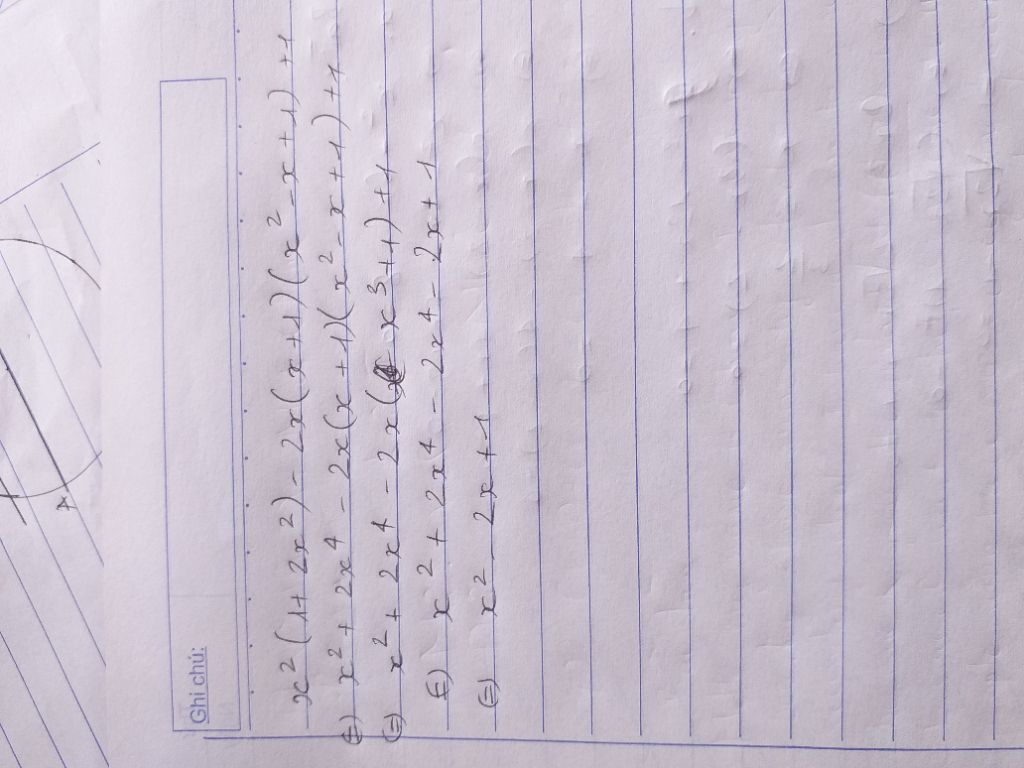 Ghi chú:
x² (1+2x²) - 2x(x+1)(x² - x+1) +1
(=) x² + 2x⁴ - 2x(x+1)(x² - x+1) +1
(=) x² + 2x⁴ - 2x( x³+1) +1
(=) x² + 2x⁴ - 2x⁴ - 2x+1
(=) x² - 2x+1
A